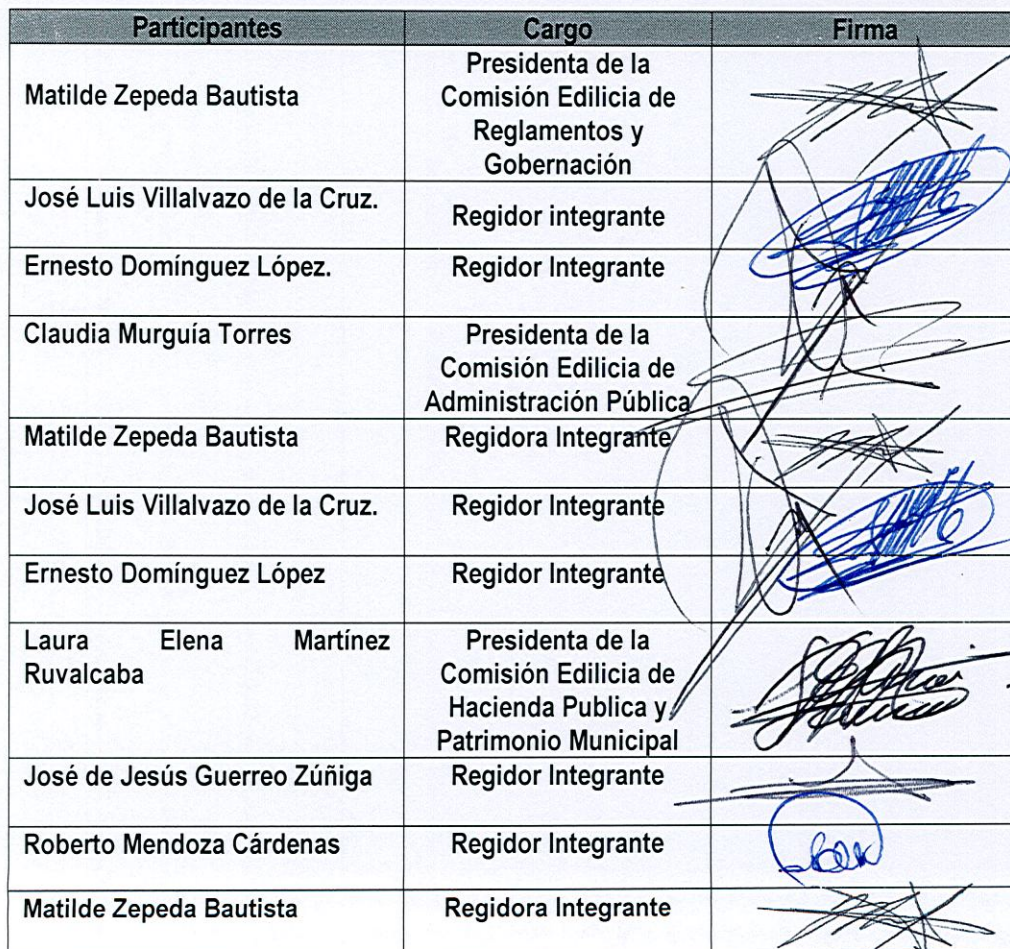 Participantes Cargo Firma
Matilde Zepeda Bautista
Presidenta de la
Comisión Edilicia de
Reglamentos y
Gobernación
José Luis Villalvazo de la Cruz.
Regidor integrante
Ernesto Domínguez López.
Regidor Integrante
Claudia Murguía Torres
Presidenta de la
Comisión Edilicia de
Administración Pública
Matilde Zepeda Bautista
Regidora Integrante
José Luis Villalvazo de la Cruz.
Regidor Integrante
Ernesto Domínguez López
Regidor Integrante
Laura Elena Martínez
Ruvalcaba
Presidenta de la
Comisión Edilicia de
Hacienda Publica y
Patrimonio Municipal
José de Jesús Guerreo Zúñiga
Regidor Integrante
Roberto Mendoza Cárdenas
Regidor Integrante
Matilde Zepeda Bautista
Regidora Integrante